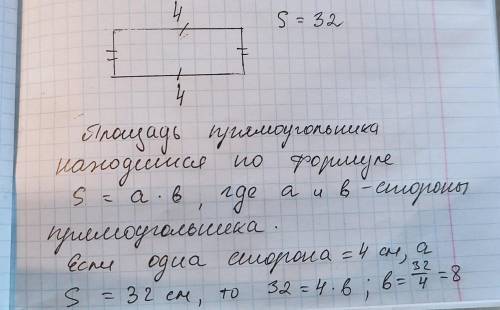 4
S = 32
4
Площадь прямоугольника
находится по формуле
S = a · в, где а и в - стороны
прямоугольника.
Если одна сторона = 4 см, а
S = 32 см, то 32 = 4 · в; в = 32/4 = 8